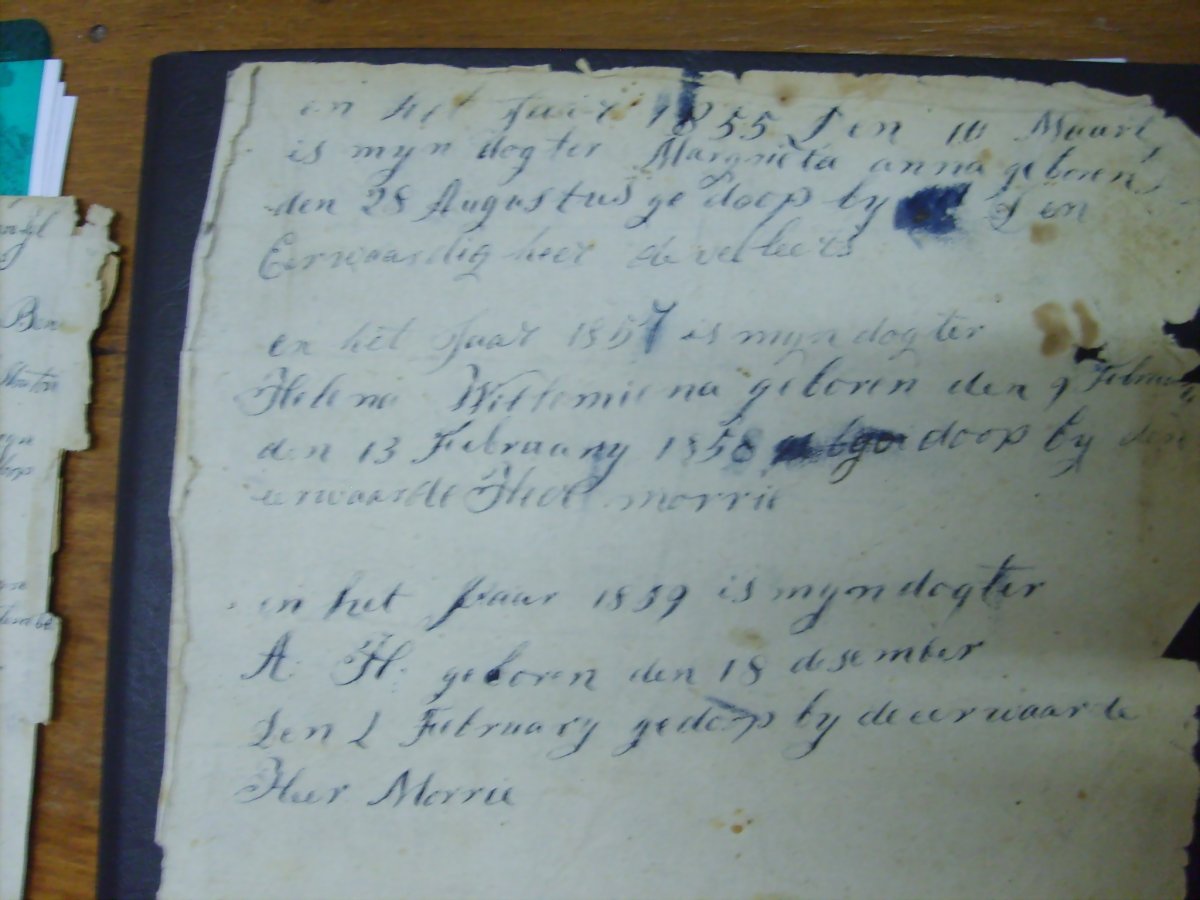 en het Jaar 1855 Den 10 Maart
is myn dogter Margrieta anna geboren
den 28 Augustus ge doop by Den
Eerwaardig heer
en het Jaar 1857 is myn dogter
Helena Willemiena geboren den 9 Februa
den 13 February 1858 doop by den
erwaarde Heer morrie
in het Jaar 1859 is myn dogter
A. H. geboren den 18 desember
Den 2 February gedoop by de eerwaarde
Heer Morrie
Ben